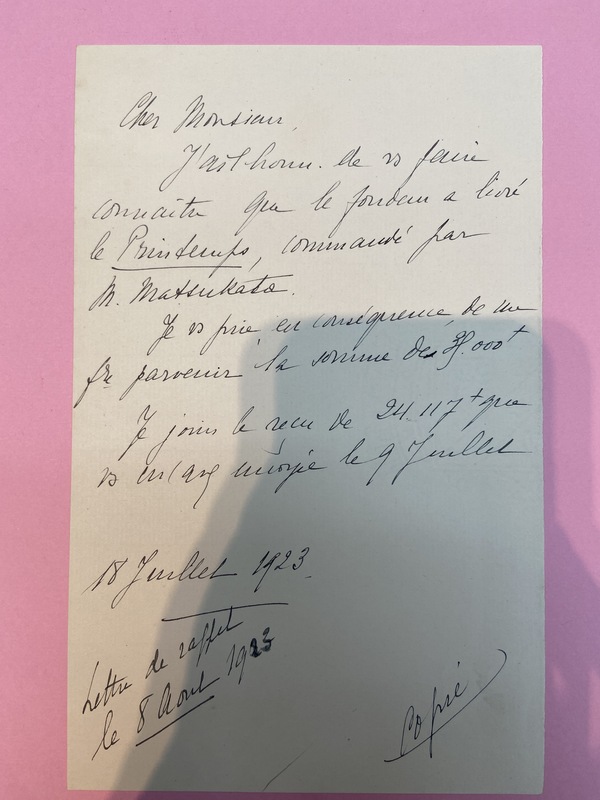 Cher Monsieur,
J'ai l'honn. de vs faire
connaitre que le fondeur a livré
le Printemps, commandé par
M. Matsukata.
Je vs prie en conséquence de me
fre parvenir la somme de .000 +
Je joins le recu de 24.117 + que
vs m'avez envoyé le 9 Juillet
18 Juillet 1923.
Lettre de rappel
le 8 Aout 1923
Copié